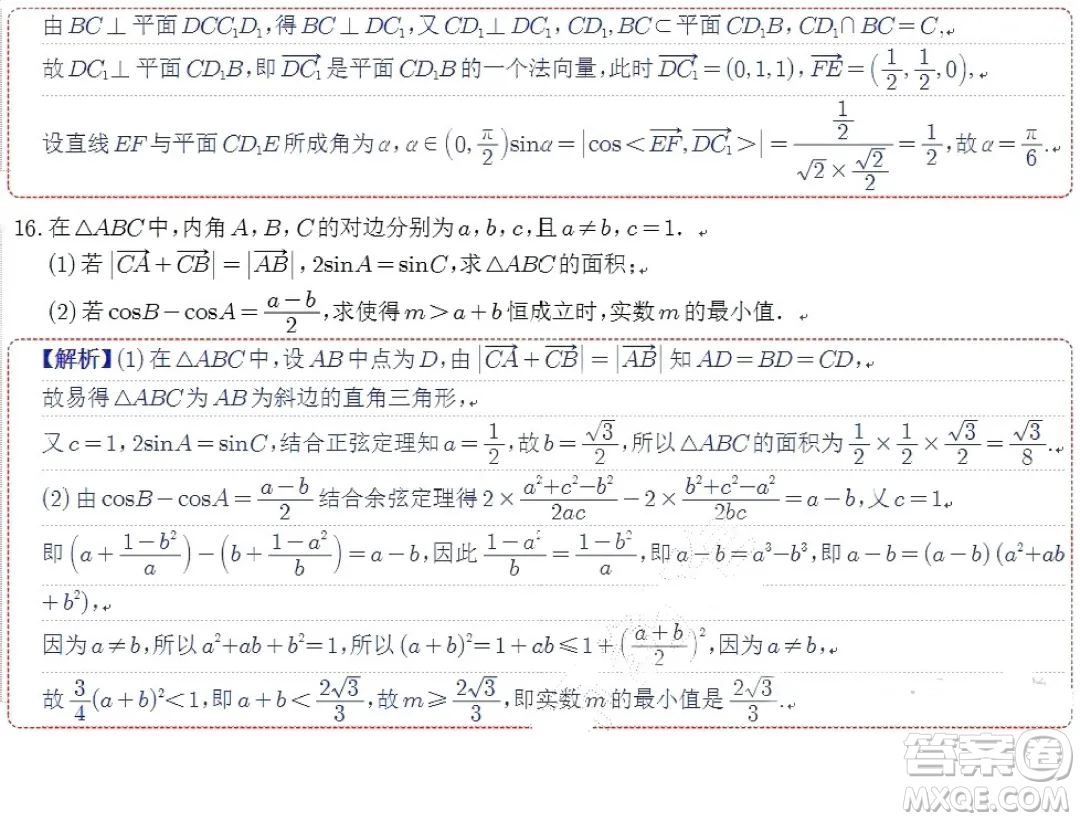 由 BC⊥平面 DCC₁D₁，得 BC⊥DC₁，又 CD₁⊥DC₁，CD₁，BC⊂平面 CD₁B，CD₁∩BC=C，
故 DC₁⊥平面 CD₁B，即 $\overrightarrow{DC_1}$ 是平面 CD₁B 的一个法向量，此时 $\overrightarrow{DC_1}=(0,1,1)$，$\overrightarrow{FE}=\left(\frac{1}{2},\frac{1}{2},0\right)$，
设直线 EF 与平面 CD₁E 所成角为 α，$α∈\left(0,\frac{π}{2}\right)\sinα=|\cos<\overrightarrow{EF},\overrightarrow{DC_1}>|=\frac{\frac{1}{2}}{\sqrt{2}×\frac{\sqrt{2}}{2}}=\frac{1}{2}$，故 $α=\frac{π}{6}$.
16.在△ABC 中，内角 A，B，C 的对边分别为 a，b，c，且 a≠b，c=1．
(1) 若 $|\overrightarrow{CA}+\overrightarrow{CB}|=|\overrightarrow{AB}|$，2sinA=sinC，求△ABC 的面积；
(2) 若 $\cos B-\cos A=\frac{a-b}{2}$，求使得 m>a+b 恒成立时，实数 m 的最小值．
【解析】(1) 在△ABC 中，设 AB 中点为 D，由 $|\overrightarrow{CA}+\overrightarrow{CB}|=|\overrightarrow{AB}|$ 知 AD=BD=CD，
故易得△ABC 为 AB 为斜边的直角三角形，
又 c=1，2sinA=sinC，结合正弦定理知 $a=\frac{1}{2}$，故 $b=\frac{\sqrt{3}}{2}$，所以△ABC 的面积为 $\frac{1}{2}×\frac{1}{2}×\frac{\sqrt{3}}{2}=\frac{\sqrt{3}}{8}$.
(2) 由 $\cos B-\cos A=\frac{a-b}{2}$ 结合余弦定理得 $2×\frac{a^2+c^2-b^2}{2ac}-2×\frac{b^2+c^2-a^2}{2bc}=a-b$，又 c=1
即 $\left(a+\frac{1-b^2}{a}\right)-\left(b+\frac{1-a^2}{b}\right)=a-b$，因此 $\frac{1-a^2}{b}=\frac{1-b^2}{a}$，即 a-b=a³-b³，即 a-b=(a-b)(a²+ab
+b²)，
因为 a≠b，所以 a²+ab+b²=1，所以 $(a+b)^2=1+ab≤1+\left(\frac{a+b}{2}\right)^2$，因为 a≠b，
故 $\frac{3}{4}(a+b)^2<1$，即 $a+b<\frac{2\sqrt{3}}{3}$，故 $m≥\frac{2\sqrt{3}}{3}$，即实数 m 的最小值是 $\frac{2\sqrt{3}}{3}$.
答案卷
MXQE.COM